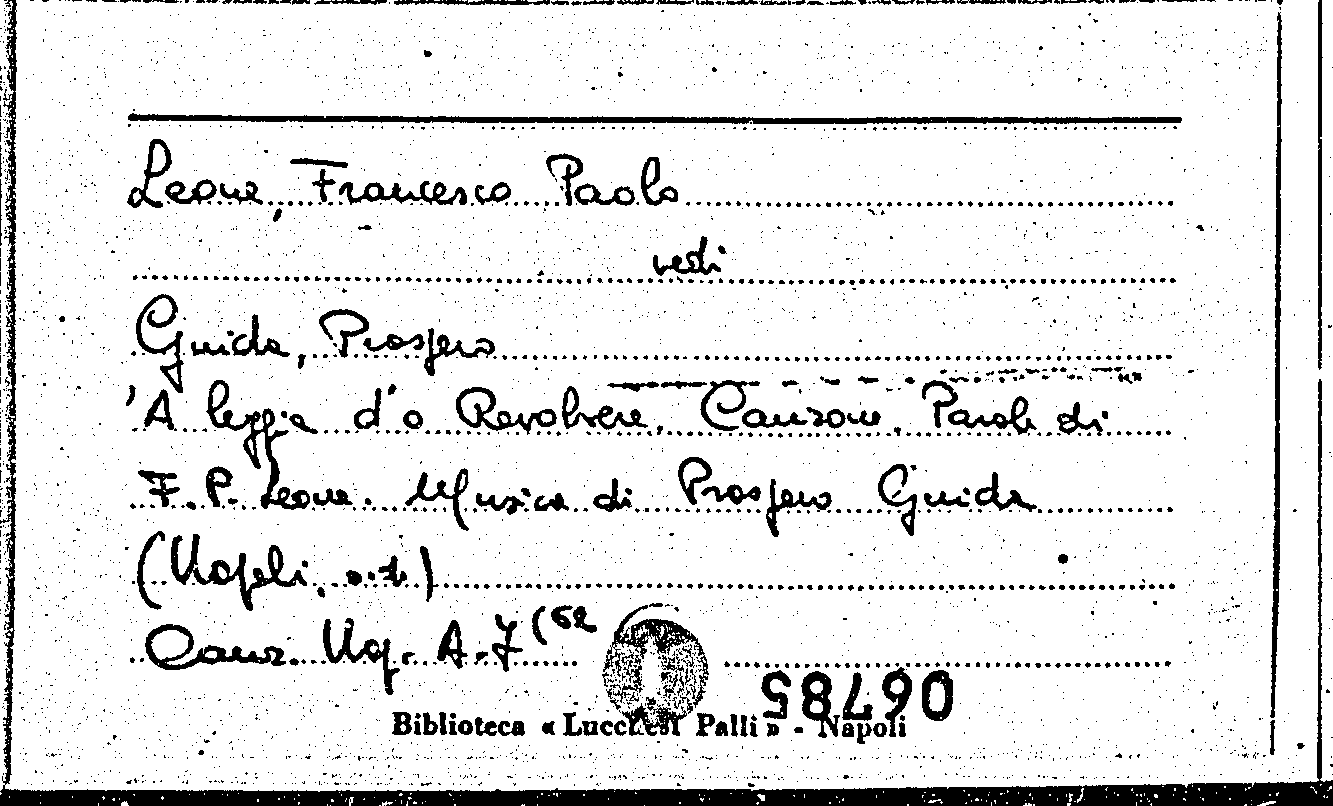 Leone, Francesco Paolo
vedi
Guida, Prospero
'A leggia d''o Revolvere. Canzone. Parole di
F. P. Leone. Musica di Prospero Guida
(Napoli, s.t.)
Canz. Nap. A.7 (62
06785
Biblioteca « Lucchesi Palli » - Napoli